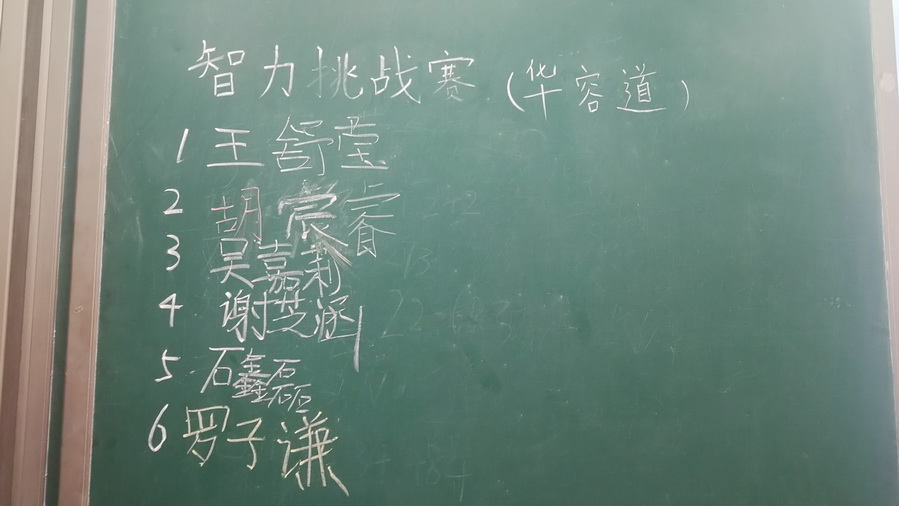 智力挑战赛 (华容道)
1 王舒莹
2 胡宸睿
3 吴嘉莉
4 谢芝涵
5 石鑫磊
6 罗子谦